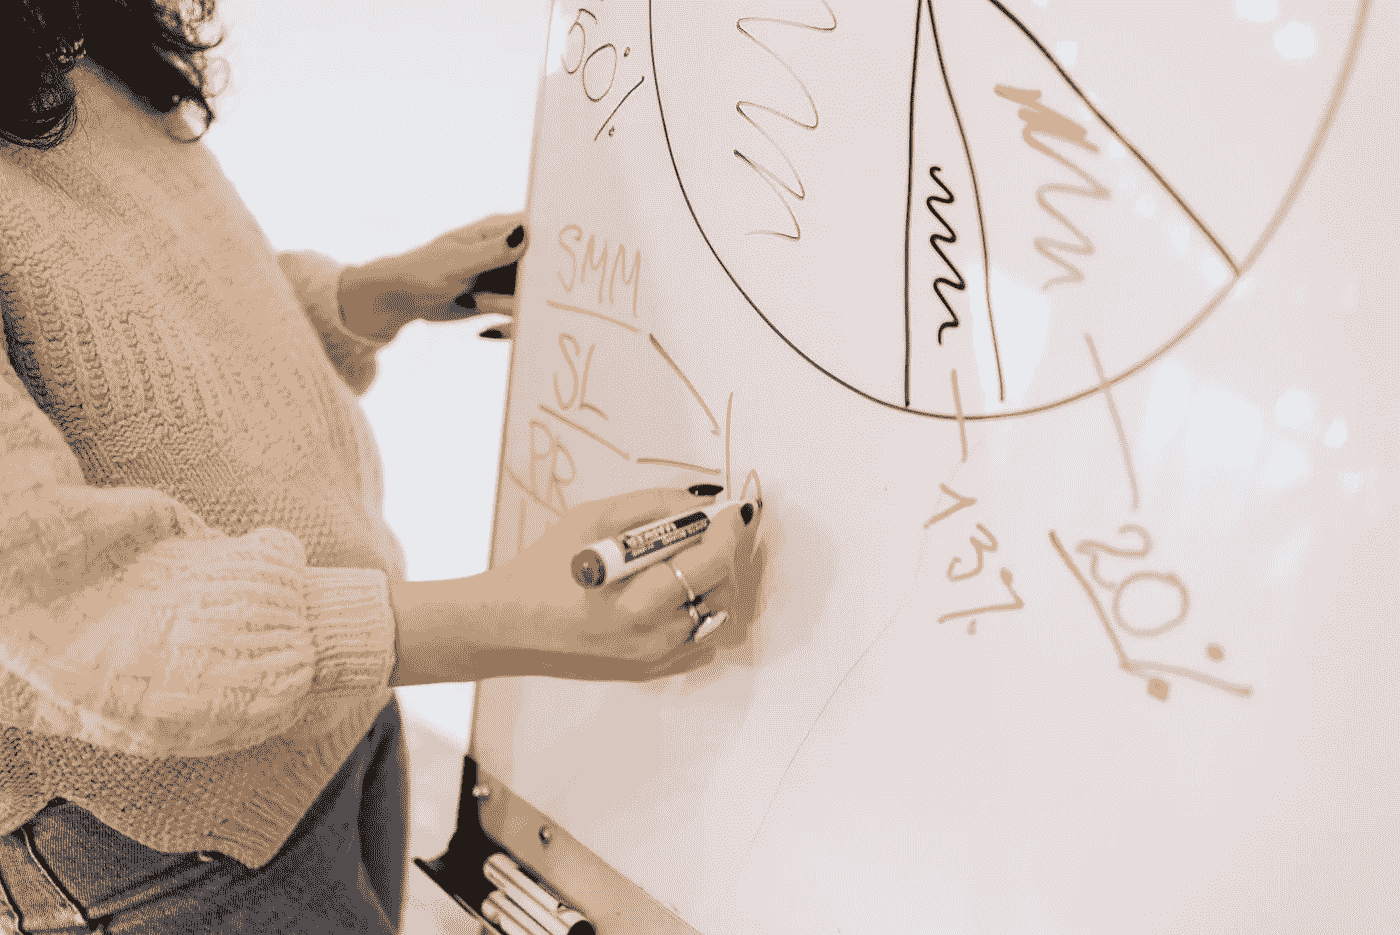 50%
SMM
SL
PR
20%